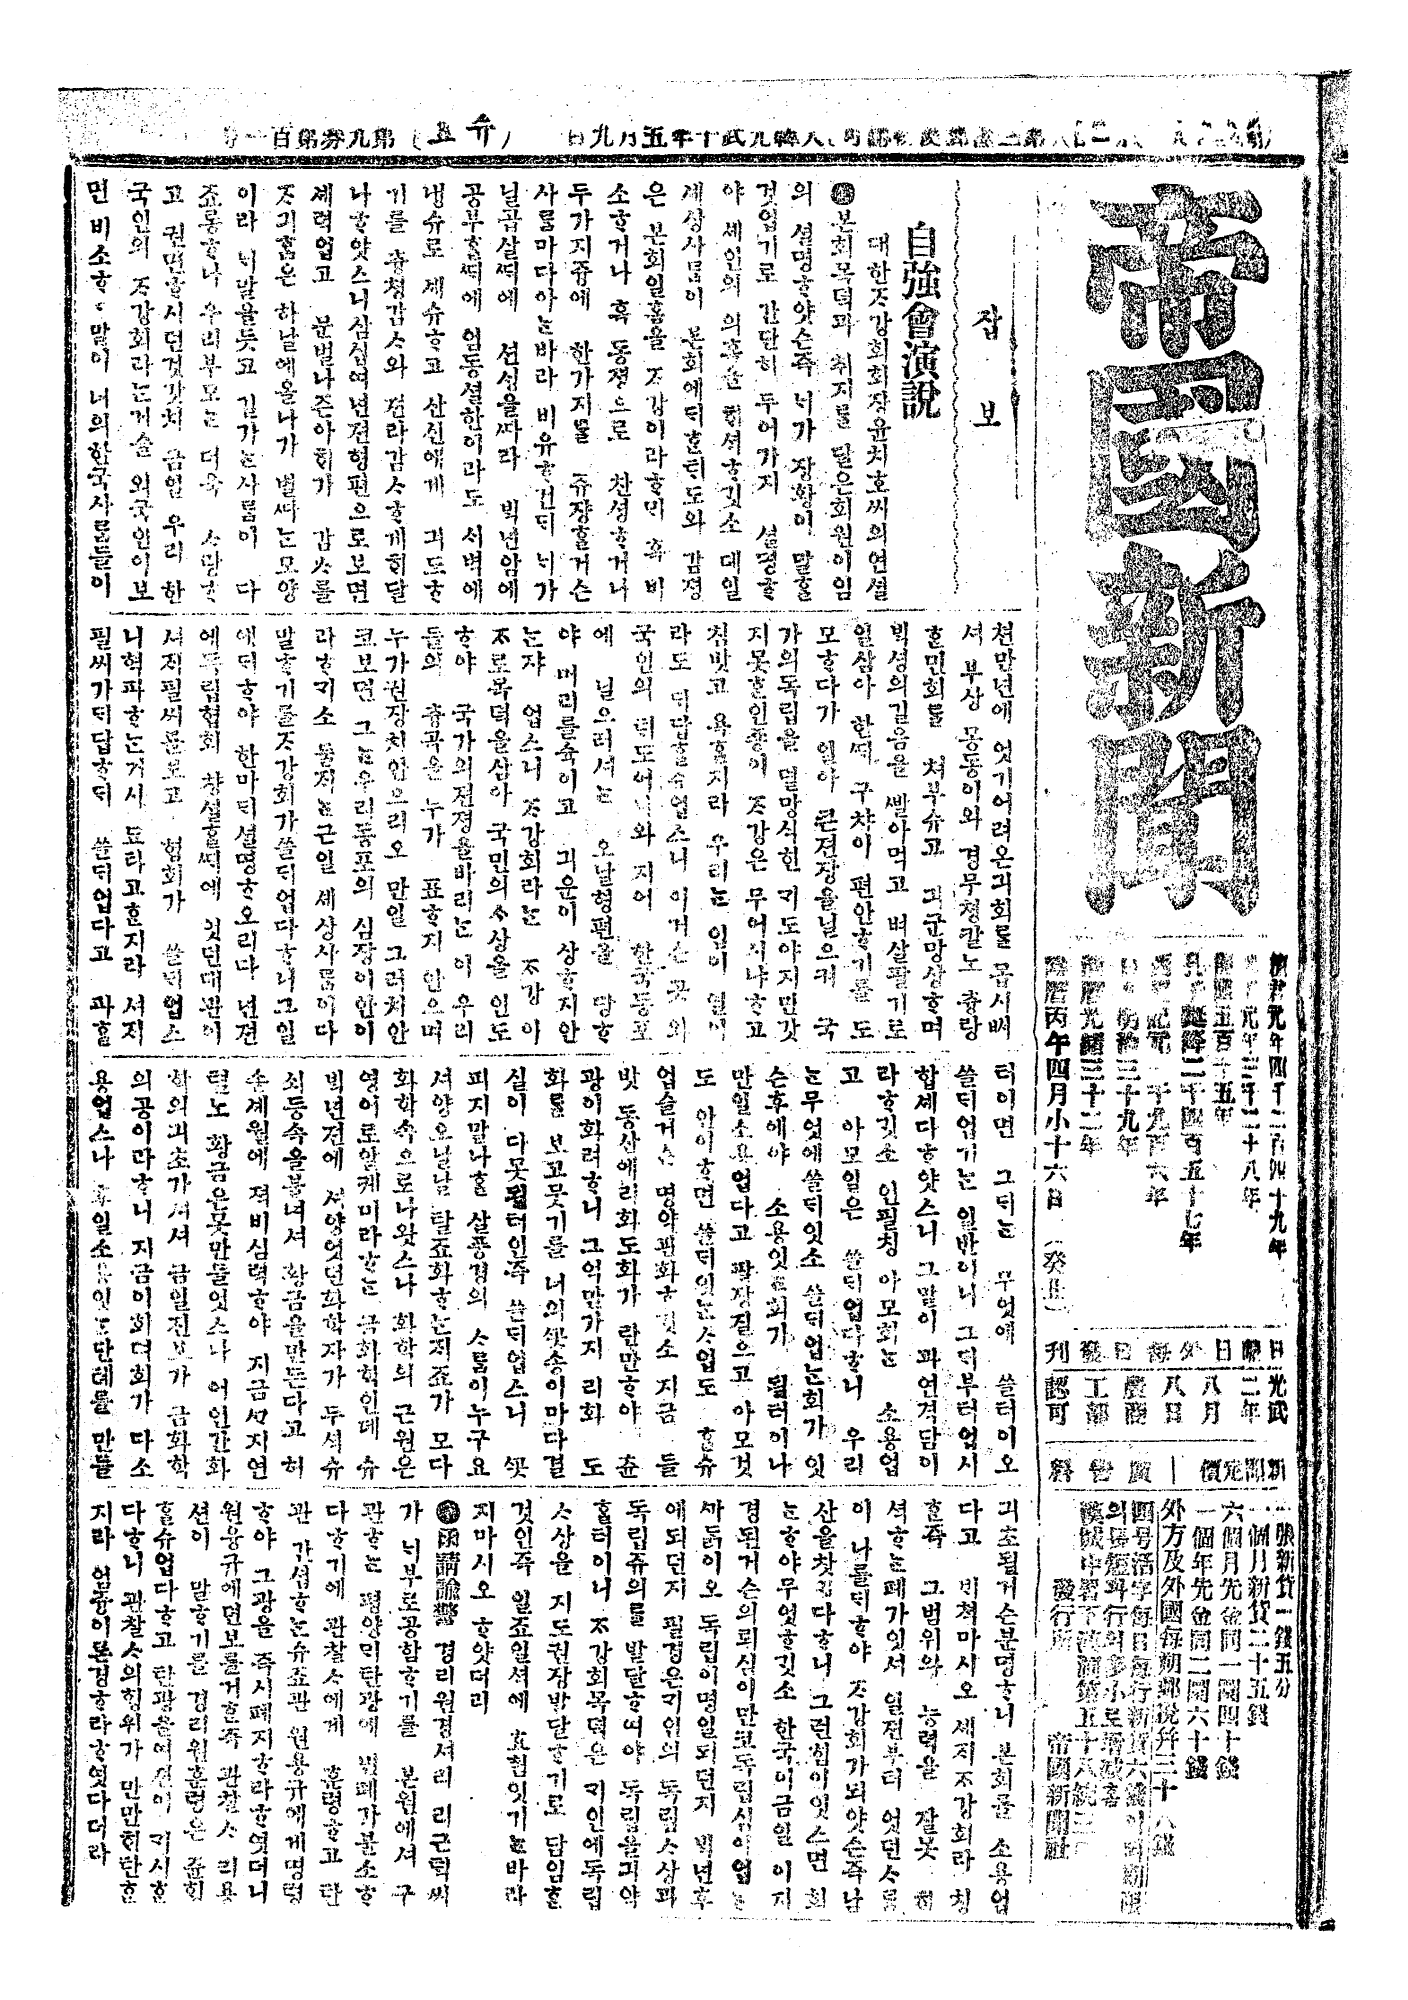 帝國新聞
檀君元年四千二百四十九年
開國五百十五年
孔子誕降二千四百五十七年
日本明治三十九年
淸國光緖三十二年
陰曆丙午四月小十六日 (癸丑)
日曜日外每日發刊
光武二年八月八日農商工部認可
新聞定價 廣告料
一張新貨一錢五分
一個月新貨二十五錢
六個月先金同一圜四十錢
一個年先金同二圜六十錢
發行所 帝國新聞社
잡보
自强會演說
대한ᄌᆞ강회회장윤치호씨의연셜
●본회목덕과 취지를 달은회원이임
의 셜명ᄒᆞ얏슨즉 ᄂᆡ가 장황이 말ᄒᆞᆯ
것업기로 간단히 두어가지 셜명ᄒᆞ
야 셰인의 의혹을 ᄒᆡ셕ᄒᆞ깃소 대뎌
셰상사ᄅᆞᆷ이 본회에ᄃᆡᄒᆞᆫᄐᆡ도와 감졍
은 본회일홈을 ᄌᆞ강이라ᄒᆞᄆᆡ 혹 비
소ᄒᆞ거나 혹 동졍으로 찬셩ᄒᆞ거나
두가지즁에 한가지를 쥬쟝ᄒᆞᆯ거슨
사ᄅᆞᆷ마다아ᄂᆞᆫ바라 비유ᄒᆞ건ᄃᆡ ᄂᆡ가
닐곱살ᄯᆡ에 션ᄉᆡᆼ을ᄯᅡ라 ᄇᆡᆨ년암에
공부ᄒᆞᆯᄯᆡ에 엄동셜한이라도 ᄉᆡ벽에
ᄂᆡᆼ슈로 셰슈ᄒᆞ고 산신에게 긔도ᄒᆞ
기를 츙쳥감ᄉᆞ와 젼라감ᄉᆞᄒᆞ게ᄒᆡ달
나ᄒᆞ얏스니삼십여년젼형편으로보면
셰력업고 문벌나즌아ᄒᆡ가 감ᄉᆞ를
ᄌᆞ긔ᄒᆞᆷ은 하날에올나가 별ᄯᅡᄂᆞᆫ모양
이라 ᄂᆡ말을듯고 길가ᄂᆞᆫ사ᄅᆞᆷ이 다
죠롱ᄒᆞ나 우리부모ᄂᆞᆫ 더욱 ᄉᆞ랑ᄒᆞ
고 권면ᄒᆞ시던것갓치 금일 우리 한
국인의 ᄌᆞ강회라ᄂᆞᆫ거슬 외국인이보
면 비소ᄒᆞᆯ 말이 너의한국사ᄅᆞᆷ들이
쳔만년에 엇기어려온긔회를 몹시ᄇᆡ
셔 부상 몽동이와 경무쳥칼노 츙량
ᄒᆞᆫ민회를 쳐부슈고 긔군망상ᄒᆞ며
ᄇᆡᆨ셩의길음을 ᄲᅡᆯ아먹고 벼살팔기로
일삼아 한ᄯᆡ 구챠이 편안ᄒᆞ기를 도
모ᄒᆞ다가 일아 큰젼장을닐으켜 국
가의독립을 멸망식힌 ᄀᆡ도야지만갓
지못ᄒᆞᆫ인죵이 ᄌᆞ강은 무어시냐ᄒᆞ고
침밧고 욕ᄒᆞᆯ지라 우리ᄂᆞᆫ 입이 열이
라도 ᄃᆡ답ᄒᆞᆯ슈업스니 이거슨 곳 외
국인의 ᄐᆡ도어니와 지어 한국동포
에 닐으러셔ᄂᆞᆫ 오날형편을 당ᄒᆞ
야 머리를슉이고 긔운이 상ᄒᆞ지안
ᄂᆞᆫ쟈 업스니 ᄌᆞ강회라ᄂᆞᆫ ᄌᆞ강 이
ᄌᆞ로목덕을삼아 국민의ᄉᆞ상을 인도
ᄒᆞ야 국가의젼졍을바리ᄂᆞᆫ 이 우리
들의 츙곡을 누가 표ᄒᆞ지 안으며
누가권쟝치안으리오 만일 그러치안
코보면 그ᄂᆞᆫ우리동포의 심쟝이안이
라ᄒᆞ깃소 둘ᄌᆡᄂᆞᆫ근일 셰상사ᄅᆞᆷ이다
말ᄒᆞ기를ᄌᆞ강회가쓸ᄃᆡ업다ᄒᆞ니그일
에ᄃᆡᄒᆞ야 한마ᄃᆡ셜명ᄒᆞ오리다 년젼
에독립협회 창셜ᄒᆞᆯᄯᆡ에 잇던대관이
셔ᄌᆡ필씨를보고 협회가 쓸ᄃᆡ업스
니혁파ᄒᆞᄂᆞᆫ거시 됴타고ᄒᆞᆫ지라 셔ᄌᆡ
필씨가ᄃᆡ답ᄒᆞᄃᆡ 쓸ᄃᆡ업다고 파ᄒᆞᆯ
터이면 그ᄃᆡᄂᆞᆫ 무엇에 쓸터이오
쓸ᄃᆡ업기ᄂᆞᆫ 일반이니 그ᄃᆡ부터업시
합셰다ᄒᆞ얏스니 그말이 과연격담이
라ᄒᆞ깃소 인필칭 아모회ᄂᆞᆫ 소용업
고 아모일은 쓸ᄃᆡ업다ᄒᆞ니 우리
ᄂᆞᆫ무엇에쓸ᄃᆡ잇소 쓸ᄃᆡ업ᄂᆞᆫ회가 잇
슨후에야 소용잇ᄂᆞᆫ회가 될터이나
만일소용업다고 팔장ᄭᅵ으고 아모것
도 안이ᄒᆞ면 쓸ᄃᆡ잇ᄂᆞᆫᄉᆞ업도 ᄒᆞᆯ슈
업슬거슨 명약관화ᄒᆞ깃소 지금 들
밧 동산에리화도화가 란만ᄒᆞ야 츈
광이화려ᄒᆞ니 그억만가지 리화 도
화를 보고뭇기를 너의ᄭᅩᆺ송이마다결
실이 다못될터인즉 쓸ᄃᆡ업스니 ᄭᅩᆺ
피지말나ᄒᆞᆯ 살풍경의 ᄉᆞᄅᆞᆷ이누구요
셔양오날날 탈죠화ᄒᆞᄂᆞᆫᄌᆡ죠가 모다
화학즁으로나왓스나 화학의 근원은
영어로알케미라ᄒᆞᄂᆞᆫ 금화학인데 슈
ᄇᆡᆨ년젼에 셔양엇던화학자가 두셕슈
쇠등속을불녀셔 황금을만든다고 허
숑셰월에 져비심력ᄒᆞ야 지금ᄭᆞ지연
텰노 황금은못만들엇스나 어언간화
학의긔초가되여셔 금일젼보가 금화학
의공이라ᄒᆞ니 지금이회뎌회가 다소
용업스나 후일소용잇ᄂᆞᆫ단톄를 만들
긔초될거슨분명ᄒᆞ니 본회를 소용업
다고 비쳑마시오 셰ᄌᆡᄌᆞ강회라 칭
ᄒᆞᆫ즉 그범위와 능력을 잘못 ᄒᆡ
셕ᄒᆞᄂᆞᆫ폐가잇셔 일젼부터 엇던ᄉᆞᄅᆞᆷ
이 나를ᄃᆡᄒᆞ야 ᄌᆞ강회가되얏슨즉남
산을찻깃다ᄒᆞ니 그런힘이잇스면 회
ᄂᆞᆫᄒᆞ야무엇ᄒᆞ깃소 한국이금일 이지
경된거슨의뢰심이만코독립심이업ᄂᆞᆫ
ᄭᆞᄃᆞᆰ이오 독립이명일되던지 ᄇᆡᆨ년후
에되던지 필경은ᄀᆡ인의 독립ᄉᆞ상과
독립쥬의를 발달ᄒᆞ여야 독립을긔약
ᄒᆞᆯ터이니 ᄌᆞ강회목덕은 ᄀᆡ인에독립
ᄉᆞ상을 지도권쟝발달ᄒᆞ기로 담임ᄒᆞᆯ
것인즉 일죠일셕에 효험잇기ᄂᆞᆫ바라
지마시오 ᄒᆞ얏더라
경리원경셔리 리근ᄐᆡᆨ씨
가 ᄂᆡ부로공함ᄒᆞ기를 본원에셔 구
관ᄒᆞᄂᆞᆫ 평양ᄆᆡ탄광에 병폐가불소ᄒᆞ
다ᄒᆞ기에 관찰ᄉᆞ에게 훈령ᄒᆞ고 탄
관 간셥ᄒᆞᄂᆞᆫ슈죠관 원용규에게명령
ᄒᆞ야 그광을 즉시폐지ᄒᆞ라ᄒᆞ엿더니
원용규에뎐보를거ᄒᆞᆫ즉 관찰ᄉᆞ 리용
션이 말ᄒᆞ기를 경리원훈령은 쥰ᄒᆡᆼ
ᄒᆞᆯ슈업다ᄒᆞ고
다ᄒᆞ니 관찰ᄉᆞ의ᄒᆡᆼ위가 만만ᄒᆡ탄ᄒᆞᆫ
지라 엄즁이론경ᄒᆞ라ᄒᆞ엿다더라